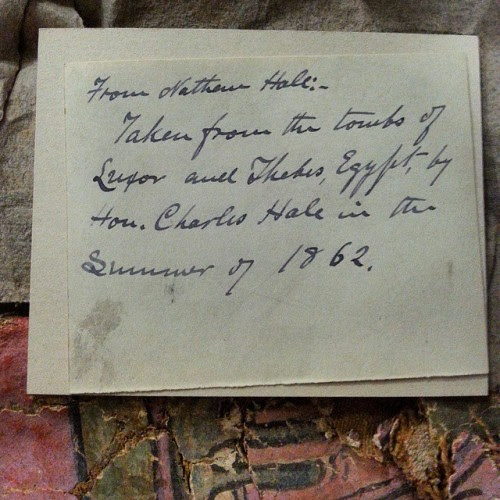 From Nathan Hale:-
Taken from the tombs of
Luxor and Thebes, Egypt, by
Hon. Charles Hale in the
Summer of 1862.